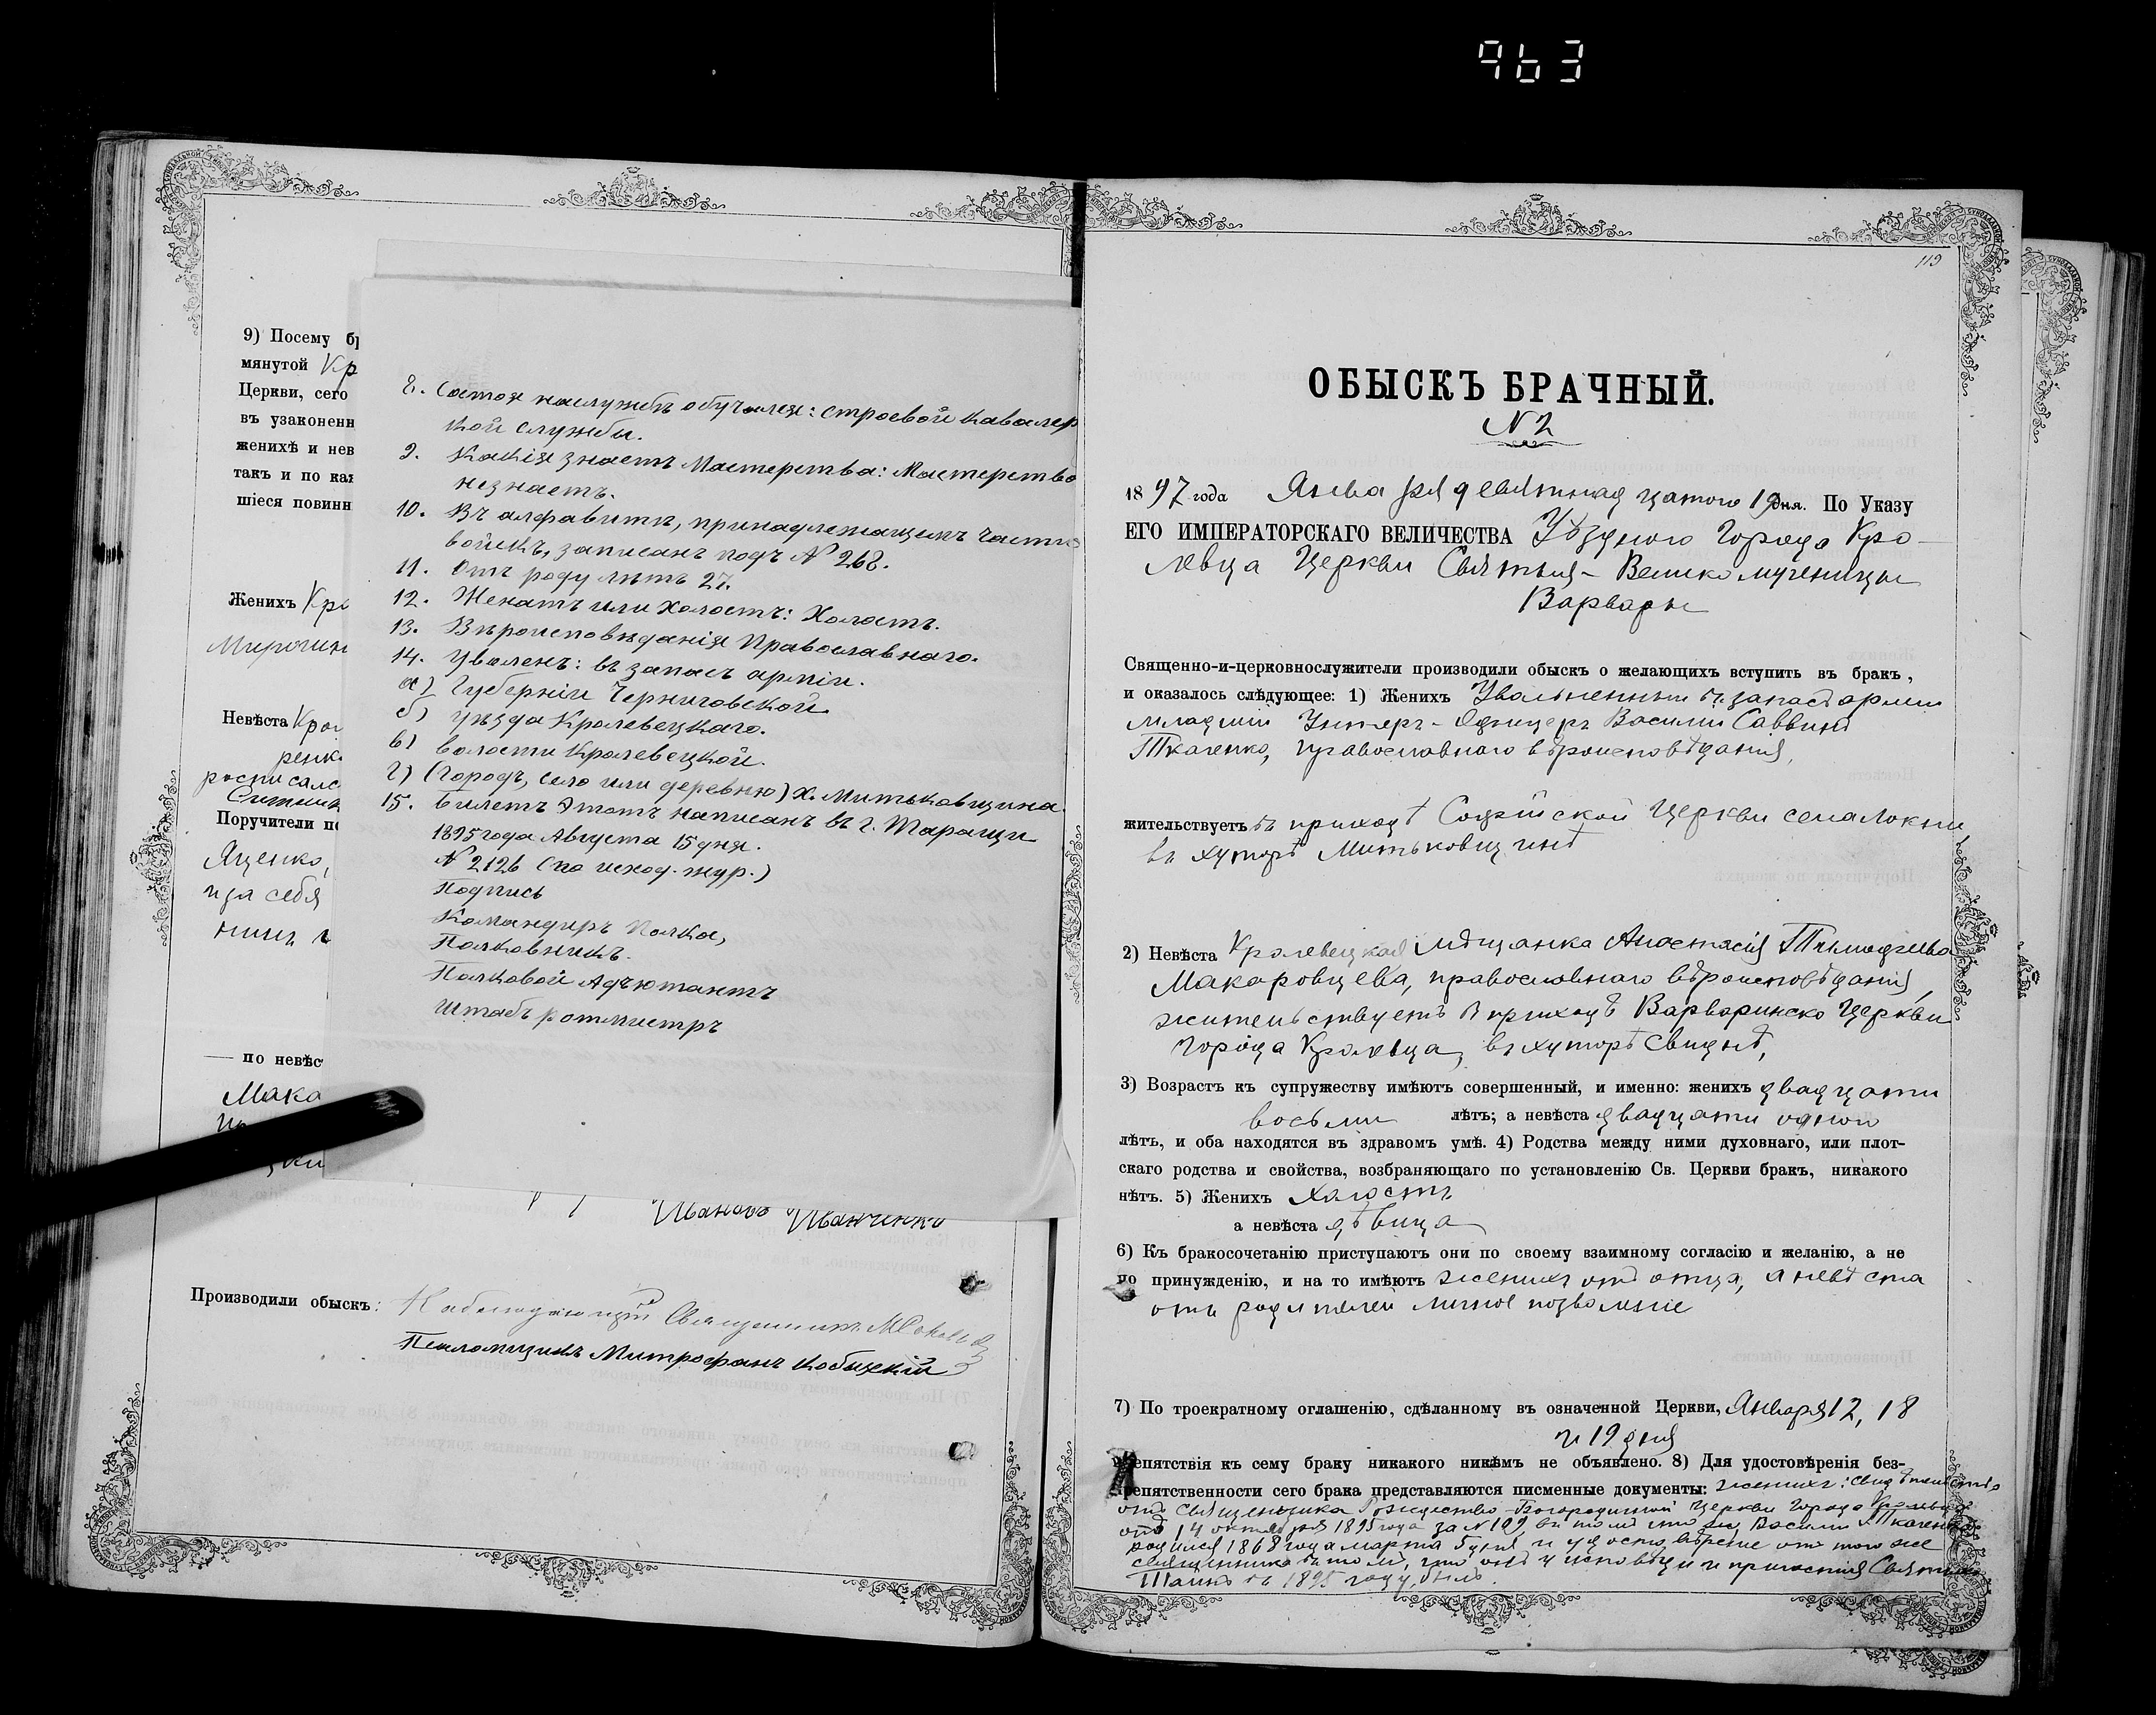 963
9) Посему бр
мянутой Кр
Церкви, сего
въ узаконенн
женихѣ и нев
такъ и по каж
шіеся повинн
Женихъ Кро
Мирочин
Невѣста Крол
ренк
росписалс
Поручители по
Яценко,
и за себя
по невѣс
Мака
8. Состоя на службѣ обучался: строевой кавалер
кой службы.
9. Какія знаетъ мастерства: Мастерство
незнаетъ.
10. Въ алфавитѣ, принадлежащемъ части
войскъ, записанъ подъ № 268.
11. Отъ роду лѣтъ 27.
12. Женатъ или холостъ: Холостъ.
13. Вѣроисповѣданія Православнаго.
14. Уволенъ: въ запасъ арміи.
а) Губерніи Черниговской
б) уѣзда Кролевецкаго.
в) волости Кролевецкой.
г) (городъ, село или деревню) х. Митьковщина.
15. Билетъ этотъ написанъ въ г. Таращи
1895 года Августа 15 дня.
№ 2126 (по исход. жур.)
Подпись
Командиръ Полка,
Полковникъ.
Полковой Адъютантъ
Штабъ ротмистръ
Ивановъ Иванченко
Производили обыскъ: Наблюдающій Священникъ М
Псаломщикъ Митрофанъ Кобыцкій
119
ОБЫСКЪ БРАЧНЫЙ.
№ 2
1897 года Января девятнадцатого 19 дня. По Указу
ЕГО ИМПЕРАТОРСКАГО ВЕЛИЧЕСТВА Уѣздного Города Кро-
левца Церкви Святыя-Великомученицы
Варвары
Священно-и-церковнослужители производили обыскъ о желающихъ вступить въ бракъ,
и оказалось слѣдующее: 1) Женихъ Уволенный въ запасъ армии
младший Унтеръ-Офицеръ Василий Саввинъ
Ткаченко, православнаго вѣроисповѣдания,
жительствуетъ въ приходѣ Софийской Церкви села Локни,
въ хуторѣ Митьковщинѣ
2) Невѣста Кролевецкая мѣщанка Анастасія Тимофеева
Макаровцева, православнаго вѣроисповѣданія,
жительствуетъ в приходѣ Варваринско Церкви
города Кролевца, въ хуторѣ Свиднѣ,
3) Возрастъ къ супружеству имѣютъ совершенный, и именно: женихъ двадцати
восьми лѣтъ; а невѣста двадцати одной
лѣтъ, и оба находятся въ здравомъ умѣ. 4) Родства между ними духовнаго, или плот-
скаго родства и свойства, возбраняющаго по установленію Св. Церкви бракъ, никакого
нѣтъ. 5) Женихъ Холостъ
а невѣста дѣвица
6) Къ бракосочетанію приступаютъ они по своему взаимному согласію и желанію, а не
по принужденію, и на то имѣютъ женихъ отъ отца, а невѣста
отъ родителей личное позволение
7) По троекратному оглашенію, сдѣланному въ означенной Церкви, Января 12, 18
и 19 дня
препятствія къ сему браку никакого никѣмъ не объявлено. 8) Для удостовѣренія без-
препятственности сего брака представляются писменные документы: женихъ: свидѣтельство
отъ священника Рождество-Богородичной Церкви города Кролевца
отъ 14 октября 1895 года за № 109, въ томъ что онъ, Василий Ткаченко
родился 1868 года марта 5 дня, и удостовѣрение отъ того же
священника въ томъ, что онъ у исповѣди и причастия Святыхъ
Таинъ въ 1895 году былъ.